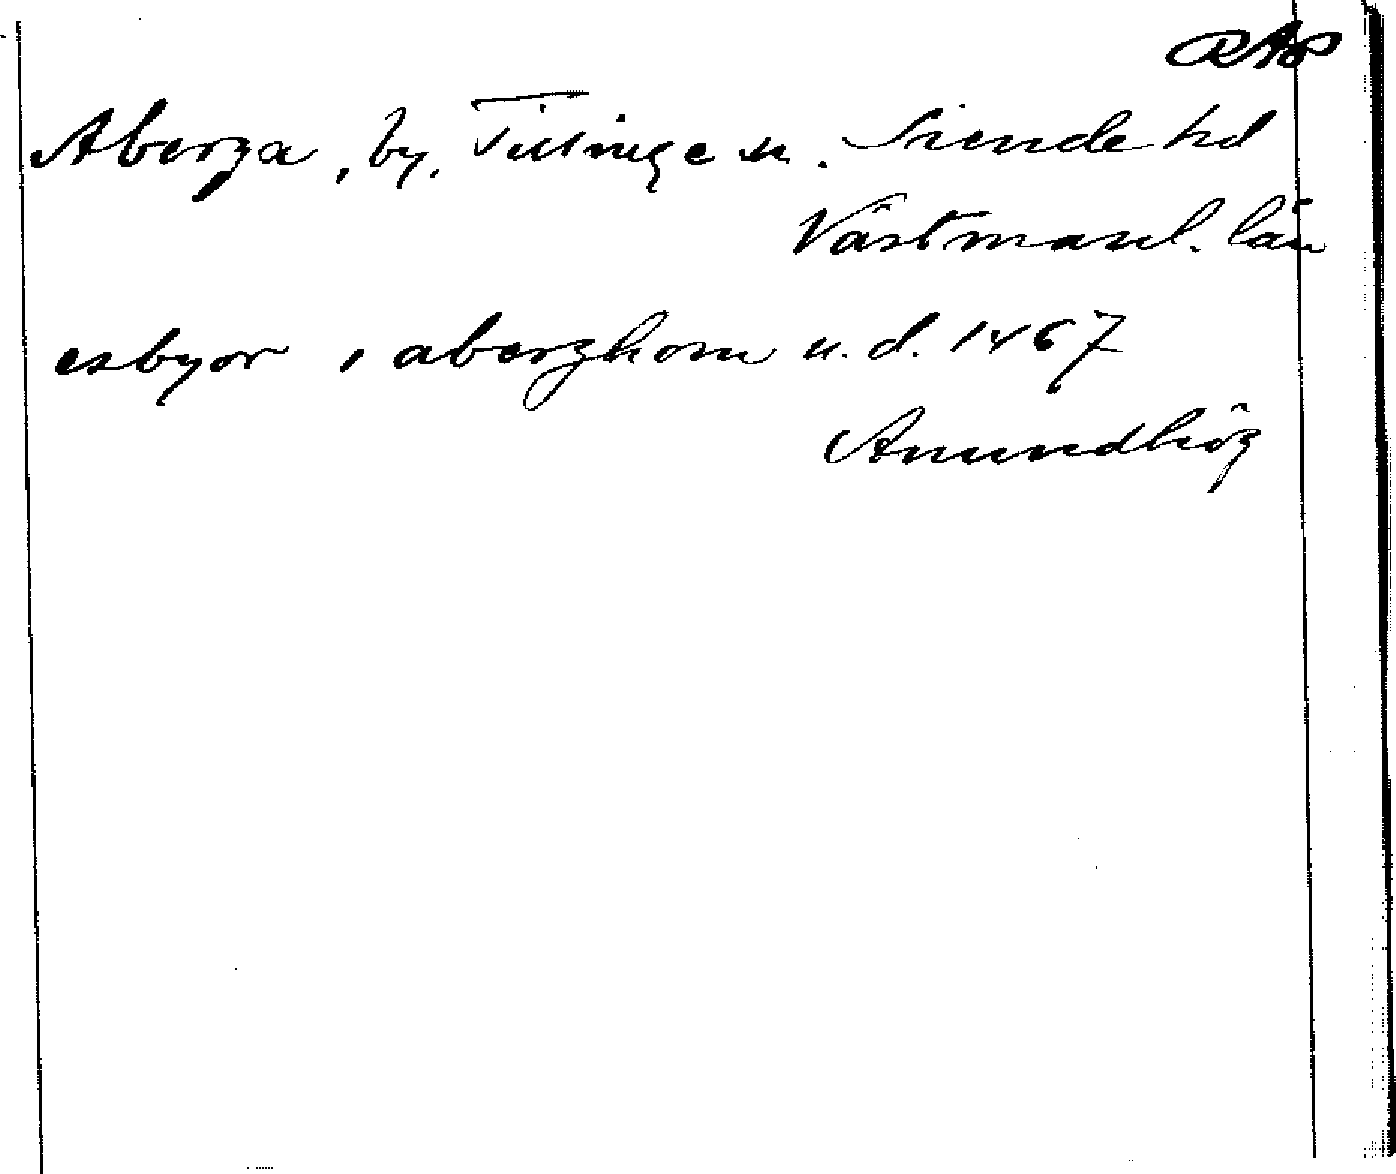 RAP
Aberga, by, Tillinge sn. Siende hd
Västmanl. län
esbyor i aberghom u. d. 1467
Anundhög